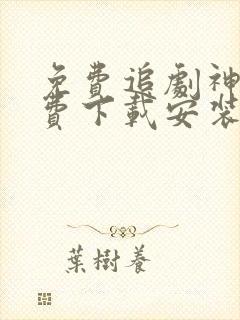 免費追劇神
費下載安裝
葉樹養